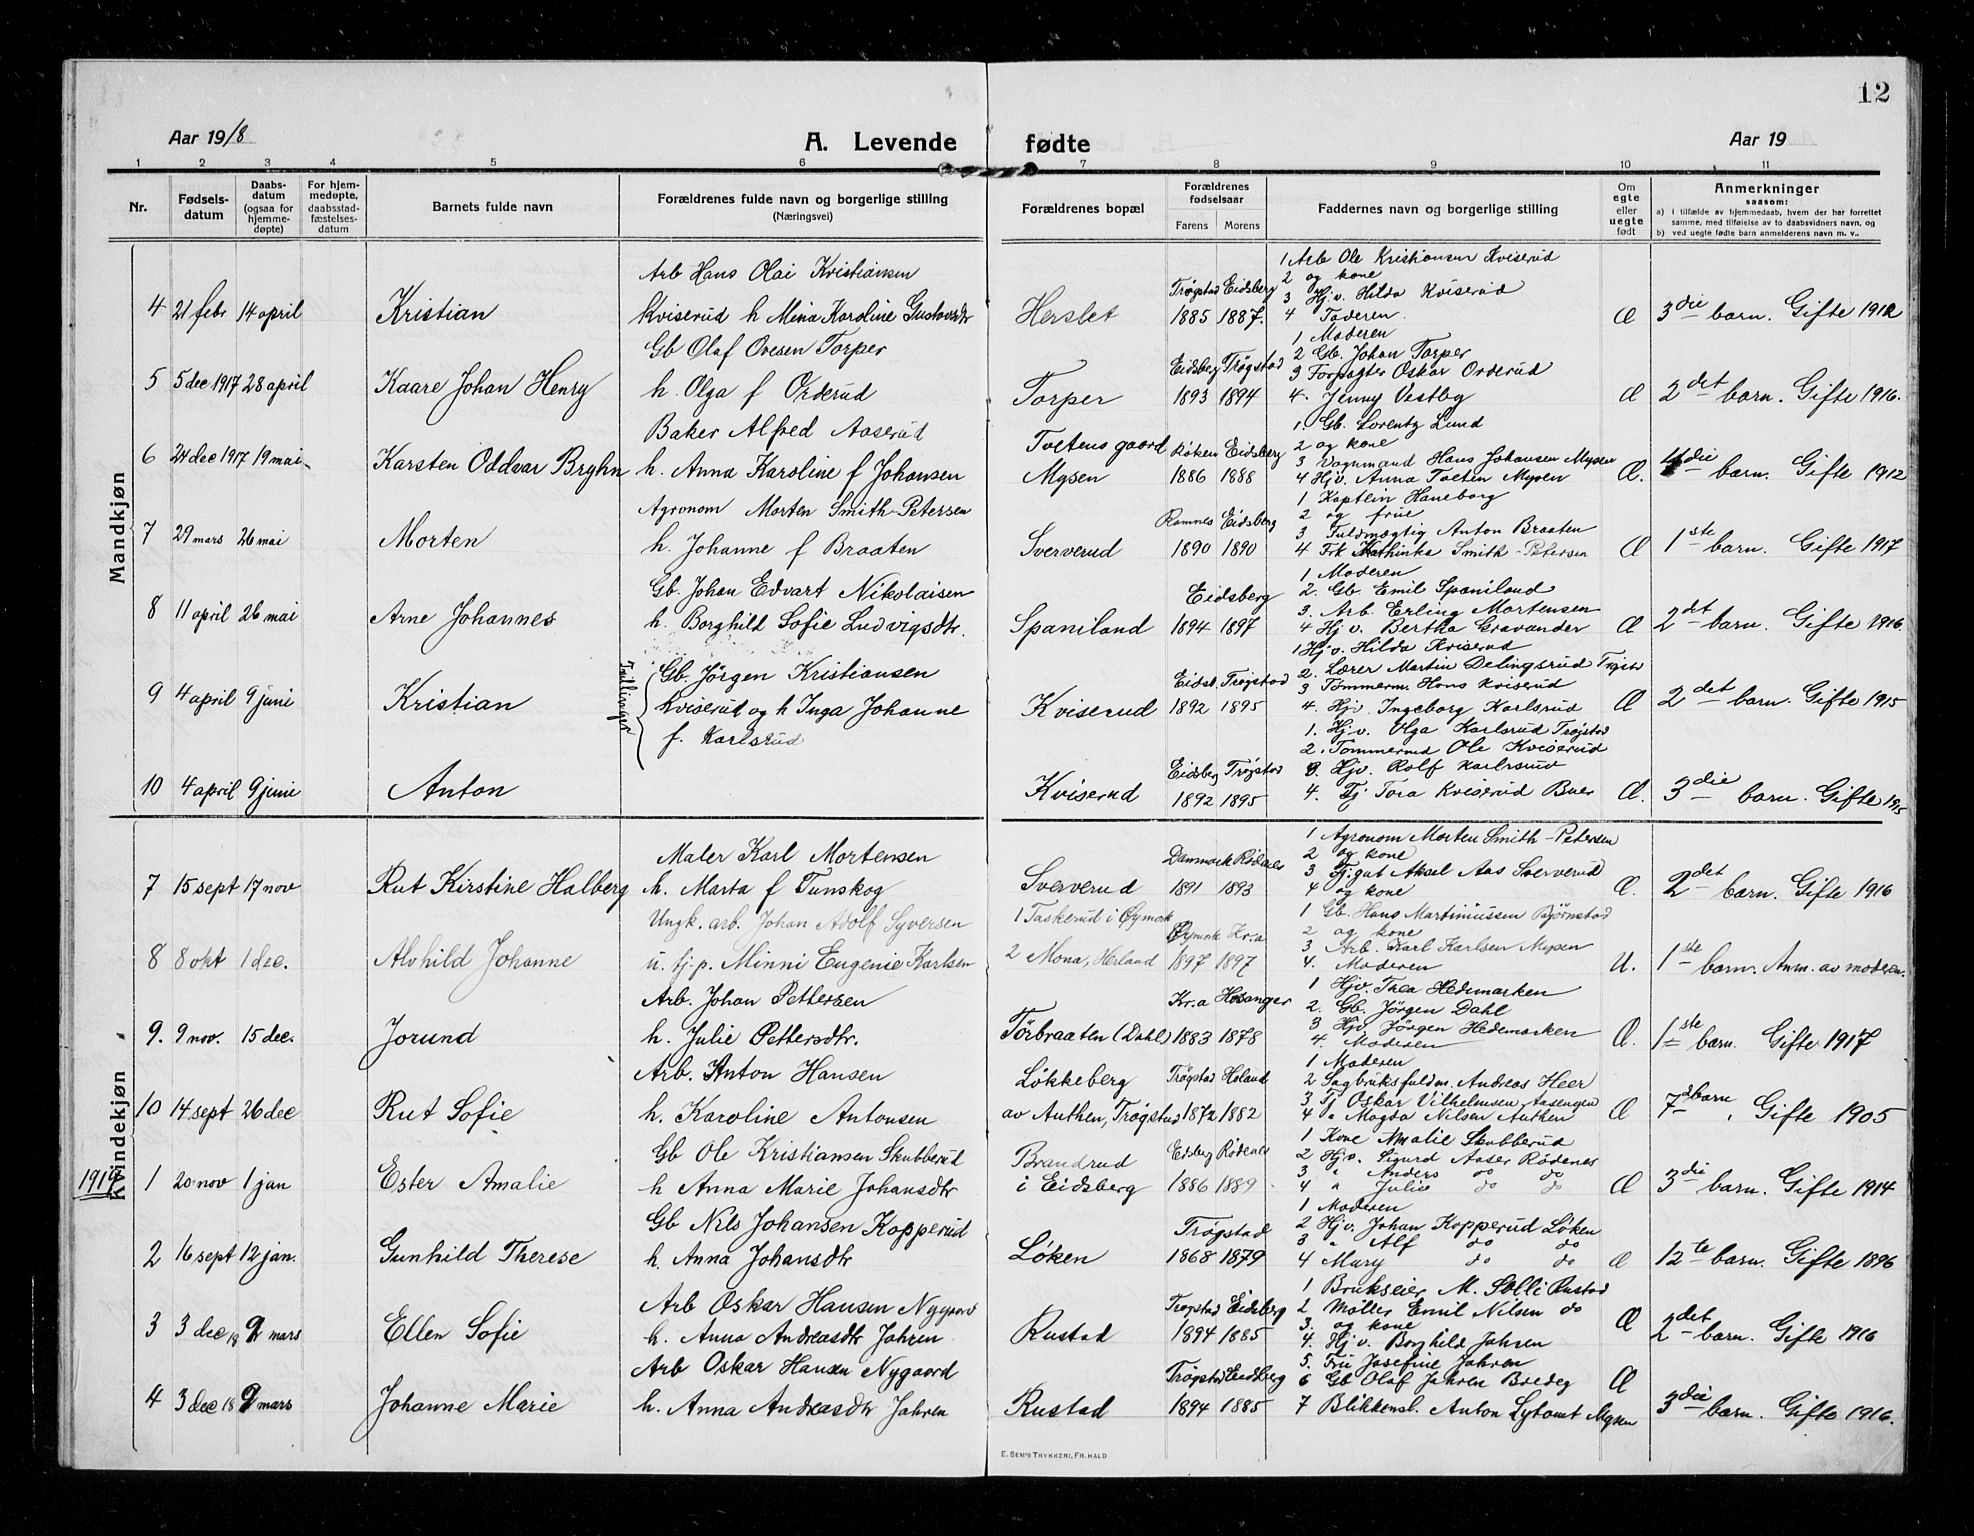 12
Aar 1918
A. Levende fødte
Aar 19
1 2 3 4 5 6 7 8 9 10 11
Nr.
Fødsels-datum
Daabs-datum (ogsaa for hjemme-døpte)
For hjem-medøpte, daabsstad-fæstelses-datum
Barnets fulde navn
Forældrenes fulde navn og borgerlige stilling
(Næringsvei)
Forældrenes bopæl
Forældrenes fødselsaar
Farens Morens
Faddernes navn og borgerlige stilling
Om egte eller uegte født
Anmerkninger
saasom:
a) I tilfælde av hjemmedaab, hvem der har forrettet
samme, med tilføielse av to daabsvidners navn, og
b) ved uegte fødte barn anmelderens navn m. v..
Mandkjøn
Arb Hans Olai Kristiansen
4 21 febr 14 april Kristian Kviserud h Mina Karoline Gustavsdtr
Herslet Trøgstad Eidsberg 1885 1887.
1 Arb Ole Kristiansen Kviserud
2 og kone
3 Hjv. Hilda Kviserud
4 Faderen
Æ 3die barn. Gifte 1912
Gb Olaf Ovesen Torper
5 5 dec 1917 28 april Kaare Johan Henry h. Olga f Orderud
Torper Eidsberg Trøgstad 1893 1894
1 Moderen
2 Gb. Johan Torper
3 Forpagter Oskar Orderud
4. Jenny Vestby
Æ 2det barn. Gifte 1916.
Baker Alfred Aaserud
6 24 dec 1917 19 mai Karsten Oddvar Bryhn h. Anna Karoline f Johansen
Toetens gaard Mysen Røken Eidsberg 1886 1888
1. Gb. Lorentz Lund
2 og kone
3 Vognmand Hans Johansen Mysen
4 Hjv. Anna Toeten Mysen
Æ. 4die barn. Gifte 1912
Agronom Morten Smith-Petersen
7 29 mars 26 mai Morten h. Johanne f Braaten
Sververud Ramnes Eidsberg 1890 1890
1 Kaptein Haneborg
2 og frue
3 Fuldmægtig Anton Braaten
4 Frk Kathinka Smith-Petersen
Æ 1ste barn. Gifte 1917
Gb. Johan Edvart Nikolaisen
8 11 april 26 mai Arne Johannes h. Borghild Sofie Ludvigsdtr.
Spaniland Eidsberg 1894 1897
1. Moderen
2. Gb Emil Spaniland
3. Arb. Erling Mortensen
4 Hjv. Bertha Gravander
Æ 2det barn. Gifte 1916.
Tvillinger
Gb. Jörgen Kristiansen
9 4 april 9 juni Kristian Kviserud og h Inga Johanne
f. Karlsrud
Kviserud Eidsb. Trøgstad 1892 1895
1 Hjv. Hilda Kviserud
2. Lærer Martin Delingsrud Trøgst
3 Tømmerm. Hans Kviserud
4. Hjv. Ingeborg Karlsrud
Æ 2det barn. Gifte 1915
10 4 april 9 juni Anton
Kviserud Eidsberg Trøgstad 1892 1895
1. Hjv. Olga Karlsrud Trøjstad
2. Tømmermd Ole Kviserud
3. Hjv. Rolf Karlsrud
4. Tj Tora Kviserud Buer
Æ. 3die barn. Gifte 1915
Kvindekjøn
Maler Karl Mortensen
7 15 sept 17 nov Rut Kirstine Halberg h. Marta f Tunskog
Sververud Danmark Rødenes 1891 1893
1 Agronom Morten Smith-Petersen
2 og kone
3 Aksel Aas Sververud
4 og kone
Æ. 2det barn. Gifte 1916
Ungk. arb. Johan Adolf Syversen
8 8 okt 1 dec. Alvhild Johanne u. tj. p. Minni Eugenie Karlsen
1 Taskerud i Øymark
2 Mona, Herland Øymark Kr.a 1897 1897
1 Gb. Hans Martinussen Bjørnstad
2 og kone
3 Arb. Karl Karlsen Mysen
4. Moderen
U. 1ste barn. Anm. av moderen.
Arb. Johan Pettersen
9. 9 nov. 15 dec. Jorund h. Julie Pettersdtr.
Törbraaten (Dahl) Kr.a Hosanger 1883 1878
1 Hjv. Thea Hedemarken
2. Gb. Jørgen Dahl
3 Hjv. Jørgen Hedemarken
4. Moderen
Æ. 1ste barn. Gifte 1917
Arb. Anton Hansen
10 14 sept 26 dec Rut Sofie h. Karoline Antonsen
Løkkeberg av Authen, Trøgstad Trøgstad Høland 1872 1882
1 Moderen
2 Sagbruksfuldm. Andreas Heer
3 Tj Oskar Vilhelmsen Aasengen
4 " Magda Nilsen Authen
Æ 7d barn. Gifte 1905
1919
Gb Ole Kristiansen Skubberud
1 20 nov 1 jan Ester Amalie h Anna Marie Johansdtr
Brandrud i Eidsberg Edsberg Rødenes 1886 1889
1 Kone Amalie Skubberud
2 Hjv. Sigurd Aaser Rødenes
3 " Anders do do
4 " Julie do do
Æ 3die barn. Gifte 1914
Gb Nils Johansen Kopperud
2 16 sept 12 jan. Gunhild Therese h. Anna Johansdtr
Løken Trøgstad 1868 1879
1 Moderen
2 Hjv. Johan Kopperud Løken
3 " Alf do do
4 Mary do do
Æ 12te barn. Gifte 1896
Arb Oskar Hansen Nygaard
3 3 dec 18 9 mars Ellen Sofie h. Anna Andreasdtr Jahren
Rustad Trøgstad Eidsberg 1894 1885
1 Brukseier M. Solli Rustad
2 Møller Emil Nilsen do
3. og kone
4. Hjv. Borghild Jahren
Æ 2det barn. Gifte 1916
Arb Oskar Hansen Nygaard
4 3 dec 18 9 mars Johanne Marie h. Anna Andreasdtr Jahren
Rustad Trøgstad Eidsberg 1894 1885
5. Fru Josefine Jahren
6 Gb Olaf Jahren Bredeg
7 Blikkensl. Anton Lytomt Mysen
Æ 3die barn. Gifte 1916.
E. SEM'S TRYKKERI, FR. HALD